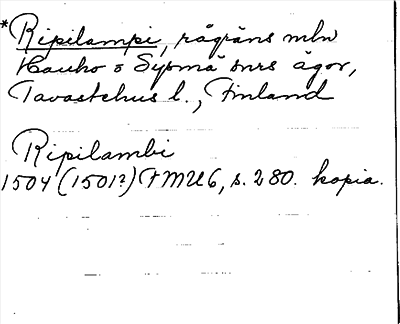 *Ripilampi, rågräns mln
Hauho o Sysmä snrs ägor,
Tavastehus l., Finland
Ripilambi
1504 (1501?) FMU6, s. 280. kopia.